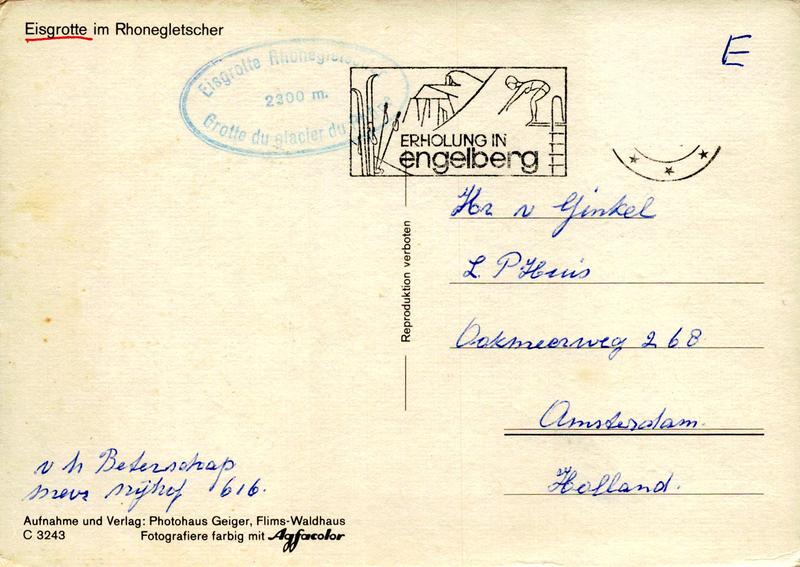 Eisgrotte im Rhonegletscher
E
Eisgrotte Rhonegletscher
2300 m.
Grotte du glacier du
ERHOLUNG IN
engelberg
Reproduktion verboten
Hr v Ginkel
L. P Huis
Ookmeerweg 268
Amsterdam.
Holland.
v h Beterschap
mevr Nijhof 616.
Aufnahme und Verlag: Photohaus Geiger, Flims-Waldhaus
C 3243 Fotografiere farbig mit Agfacolor